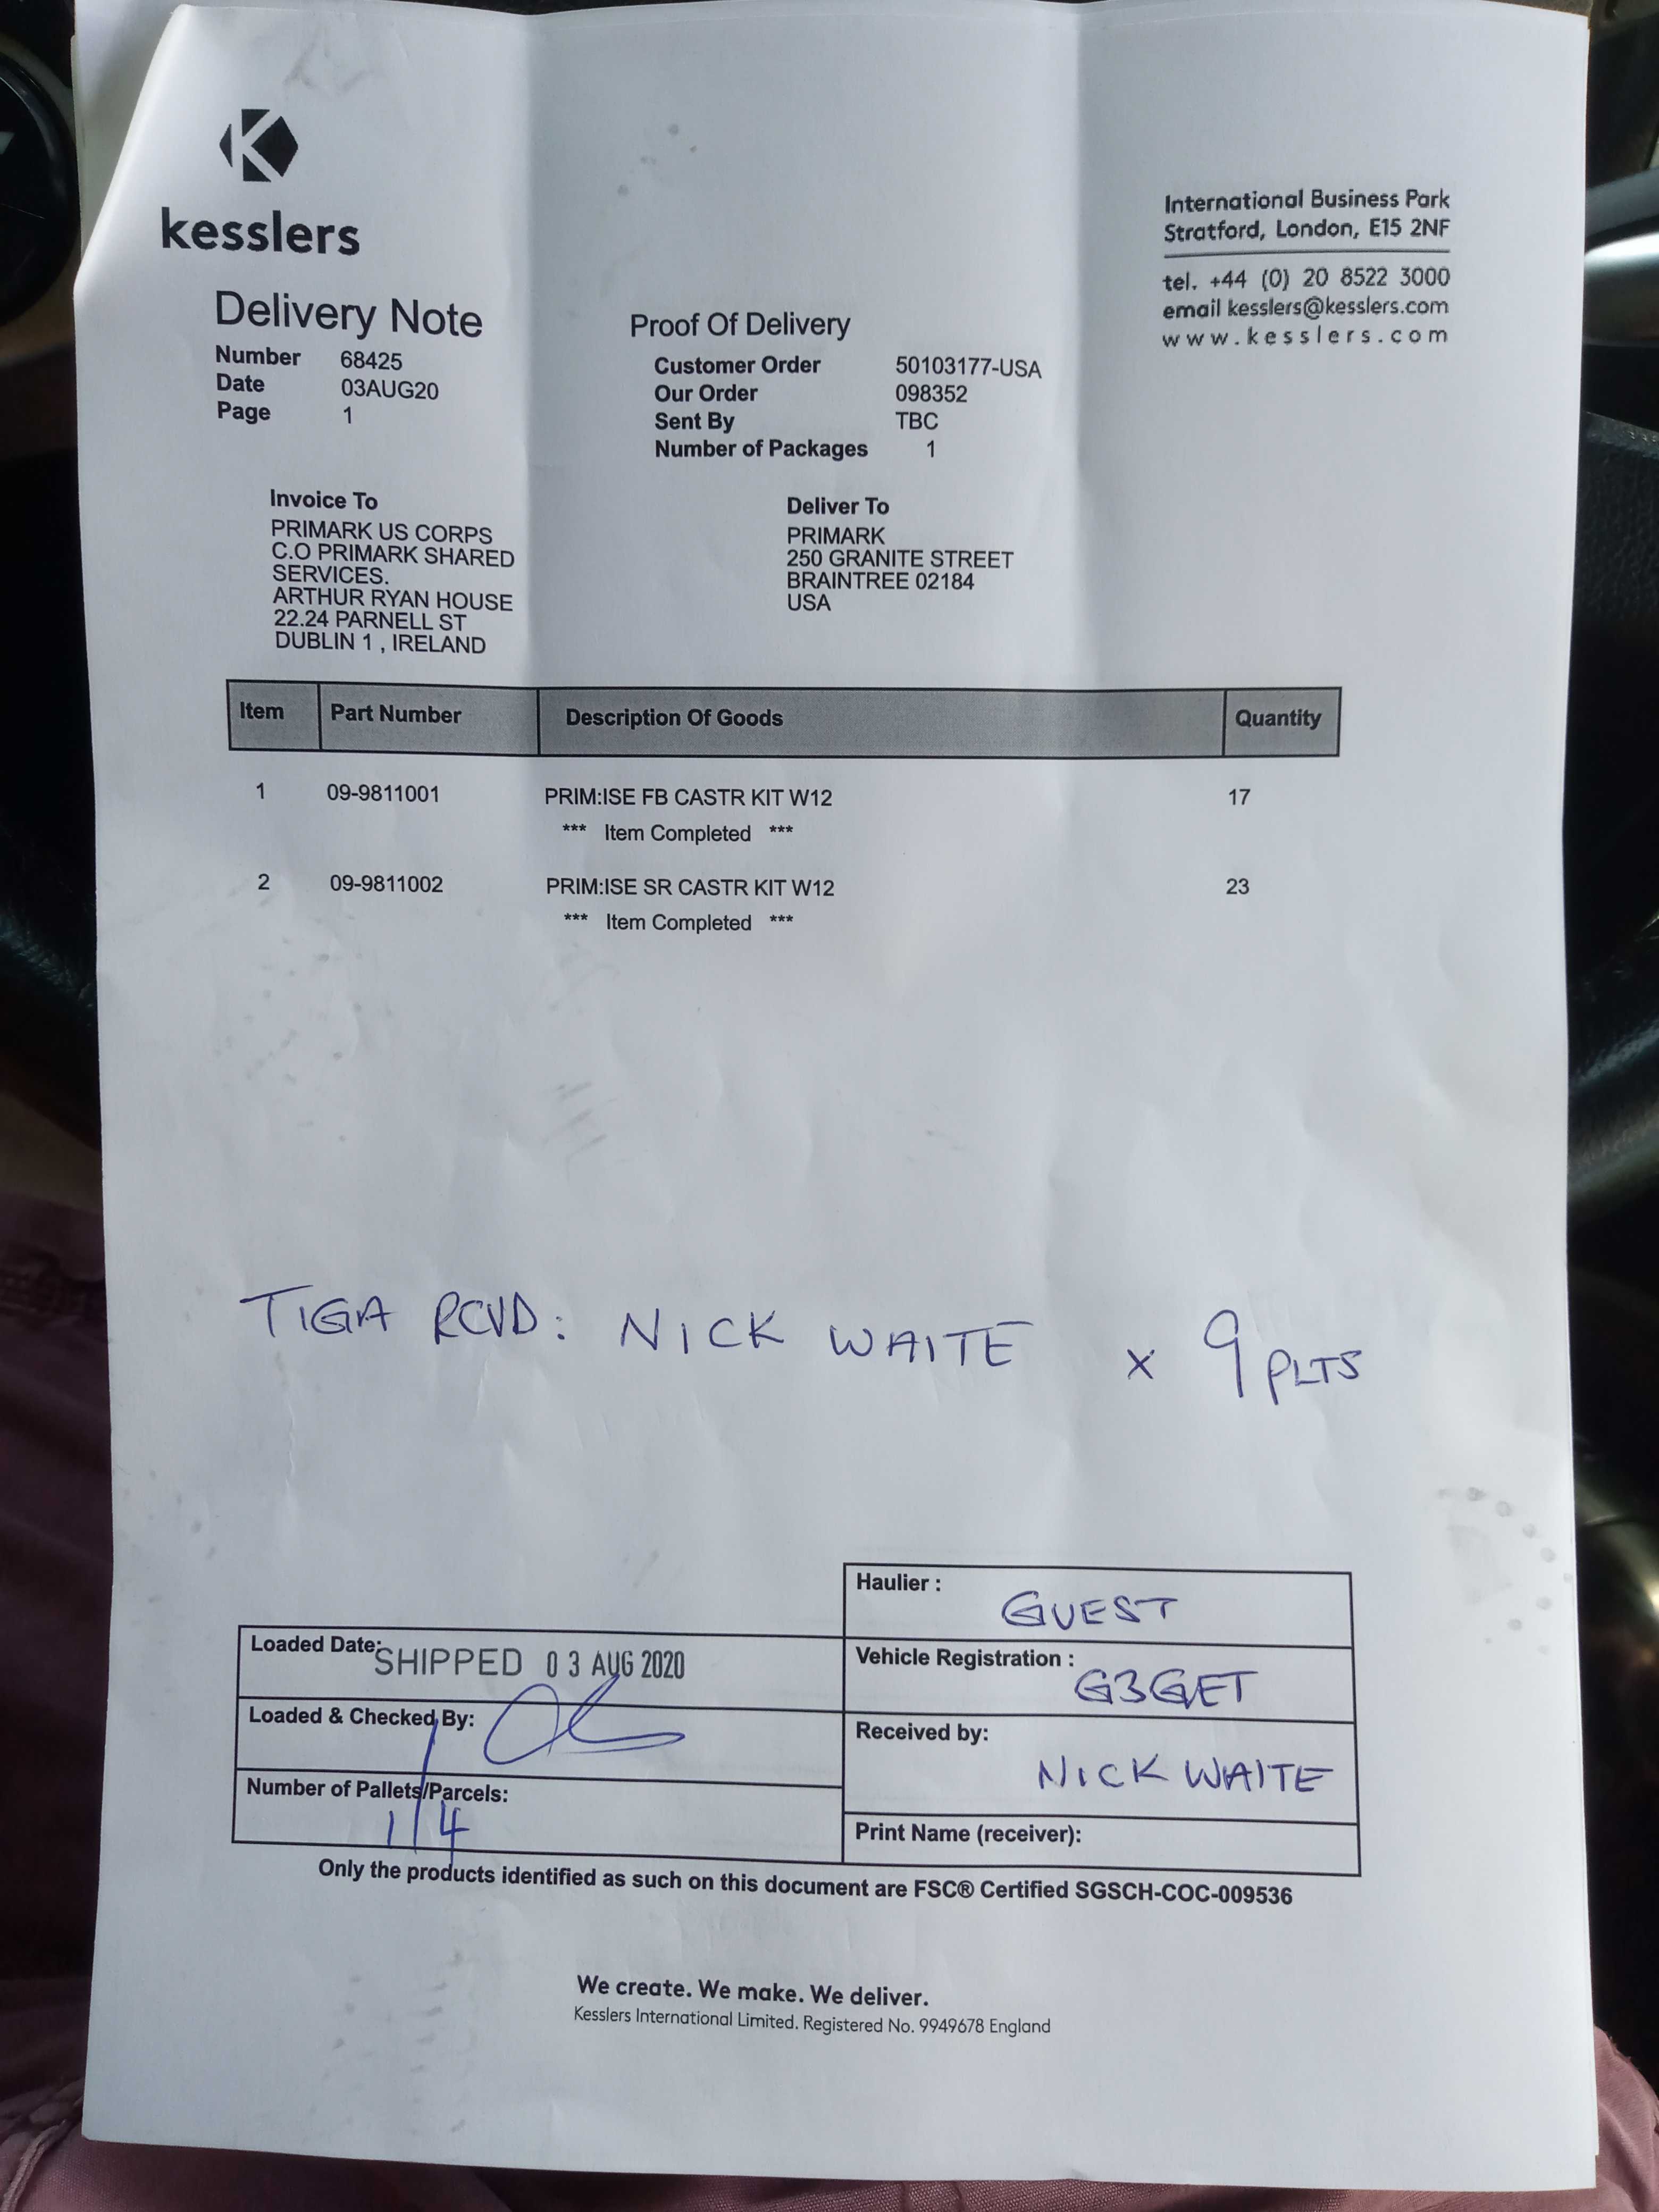 kesslers
International Business Park
Stratford, London, E15 2NF
tel. +44 (0) 20 8522 3000
email kesslers@kesslers.com
www.kesslers.com
Delivery Note
Number 68425
Date 03AUG20
Page 1
Proof Of Delivery
Customer Order 50103177-USA
Our Order 098352
Sent By TBC
Number of Packages 1
Invoice To
PRIMARK US CORPS
C.O PRIMARK SHARED
SERVICES.
ARTHUR RYAN HOUSE
22.24 PARNELL ST
DUBLIN 1 , IRELAND
Deliver To
PRIMARK
250 GRANITE STREET
BRAINTREE 02184
USA
Item Part Number Description Of Goods Quantity
1 09-9811001 PRIM:ISE FB CASTR KIT W12 17
*** Item Completed ***
2 09-9811002 PRIM:ISE SR CASTR KIT W12 23
*** Item Completed ***
TIGA RCVD: NICK WAITE x 9 PLTS
Loaded Date: SHIPPED 03 AUG 2020
Loaded & Checked By:
Number of Pallets/Parcels:
Haulier : GUEST
Vehicle Registration : G3GET
Received by: NICK WAITE
Print Name (receiver):
Only the products identified as such on this document are FSC® Certified SGSCH-COC-009536
We create. We make. We deliver.
Kesslers International Limited. Registered No. 9949678 England